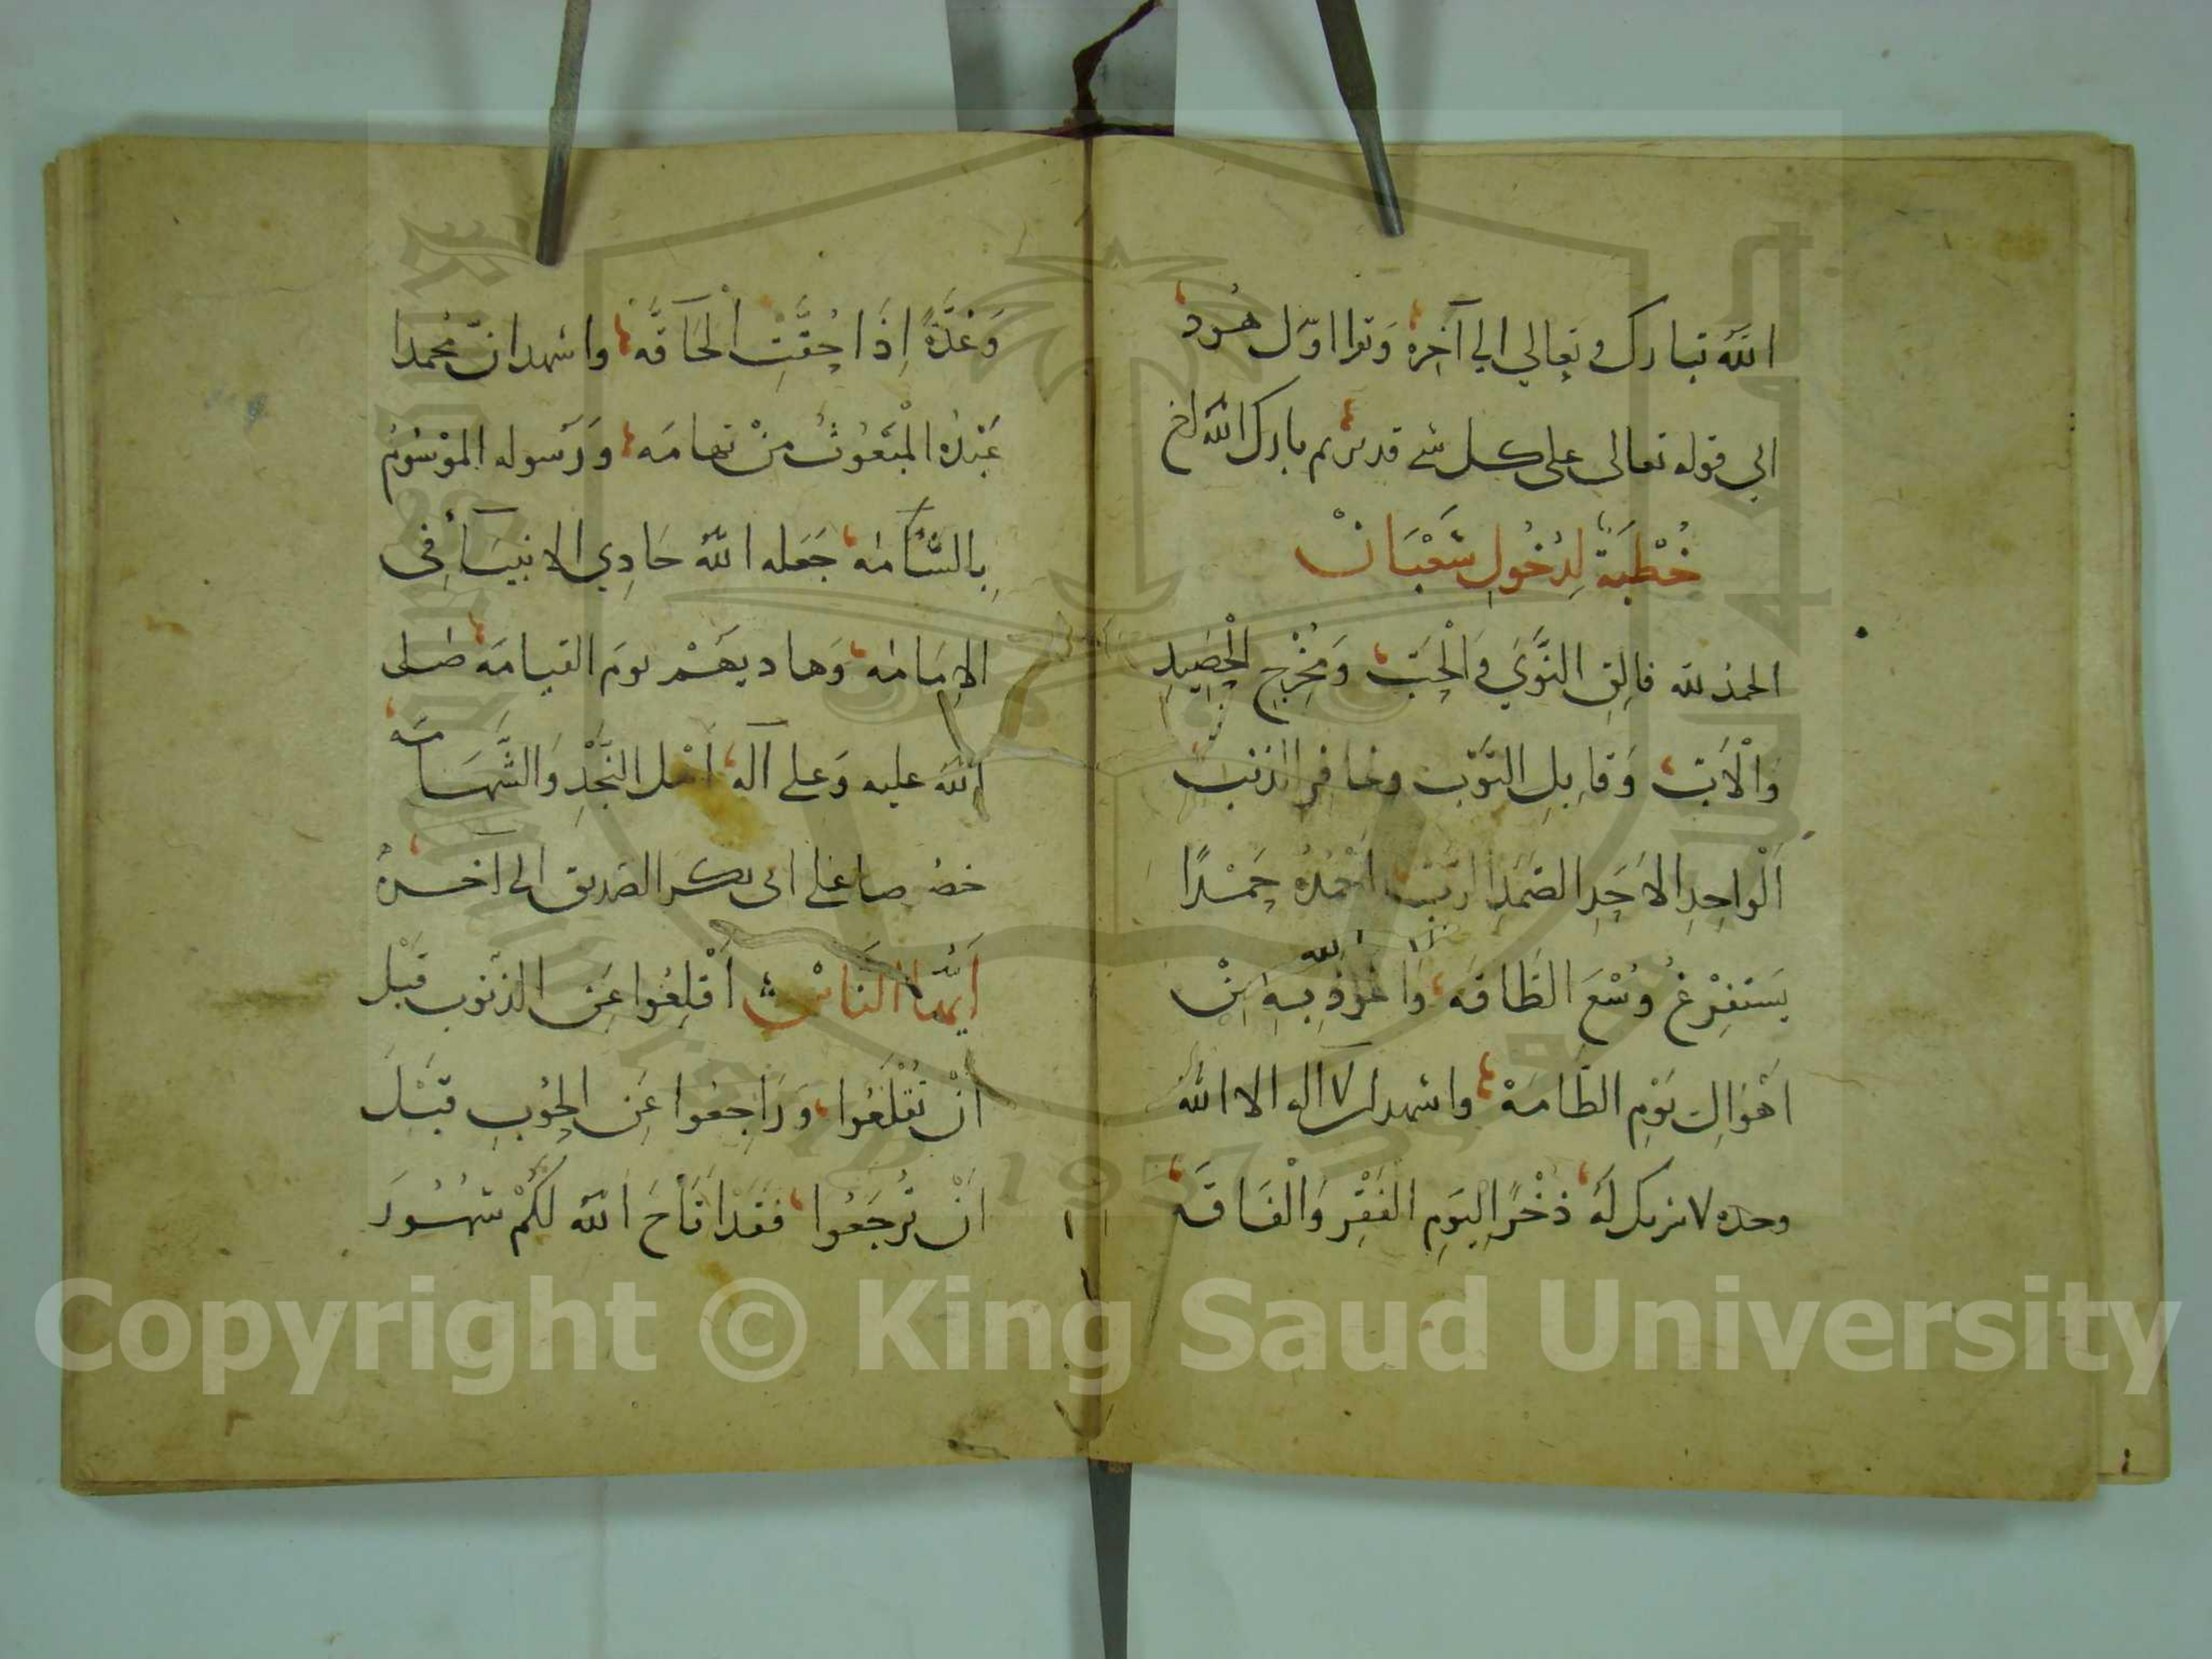 الله تبارك وتعالي الي آخره وتوا اوّل هُود
الي قوله تعالى على كل شے قدير ثم بارك الله لخ
خُطْبَةٌ لِدُخُولِ شَعْبَانْ
الحمد لله فَالِقِ النَّوَيَ وَالْحَبّ وَمُخْرِجِ الْحَصِيدِ
وَالْأَبّ وَقَابِلِ التَّوْب وغافر الذنب
اَلْواحِدِ الاَحَدِ الصَّمَدِ الرَّبّ اَحْمَدُهُ حَمْدًا
يَسْتَفْرِغُ وُسْعَ الطَّاقَه وَاَعُوذُ بِهِ مِنْ
اَهْوَالِ يَوْمِ الطَّامَةْ واشهد ان لا اله الا الله
وحده لا شريك لَه ذُخْرًا لِيَوْمِ الفَقْرِ وَالْفَاقَة
وَعُدَّةً اِذَا حُقَّتِ الْحَاقَّه واشهد انّ محمدا
عَبْدُهُ الْمَبْعُوثُ مِنْ تهامَه وَرَسوله الموْسُومُ
بِالشَّامَه جَعَله اللّٰه حَادِي الانبيَآ فِى
الاِمَامَه وَهاديهَمْ يومَ القيامَه صَلى
الله عليه وَعلى آله اَهْل النَّجْدِ وَالشَّهَامَه
خصُوصا على ابى بكر الصديق الى آخره
اَيُّهَا النَّاسْ اَقْلِعُوا عَنِ الذنوب قَبْل
اَنْ تُقْلَعُوا وَرَاجِعُوا عَنِ الحُوْبِ قَبْلَ
اَنْ تُرجَعُوا فَقَدْ اَتَاحَ اللّٰه لكُمْ شُهُورَ
Copyright © King Saud University
1957